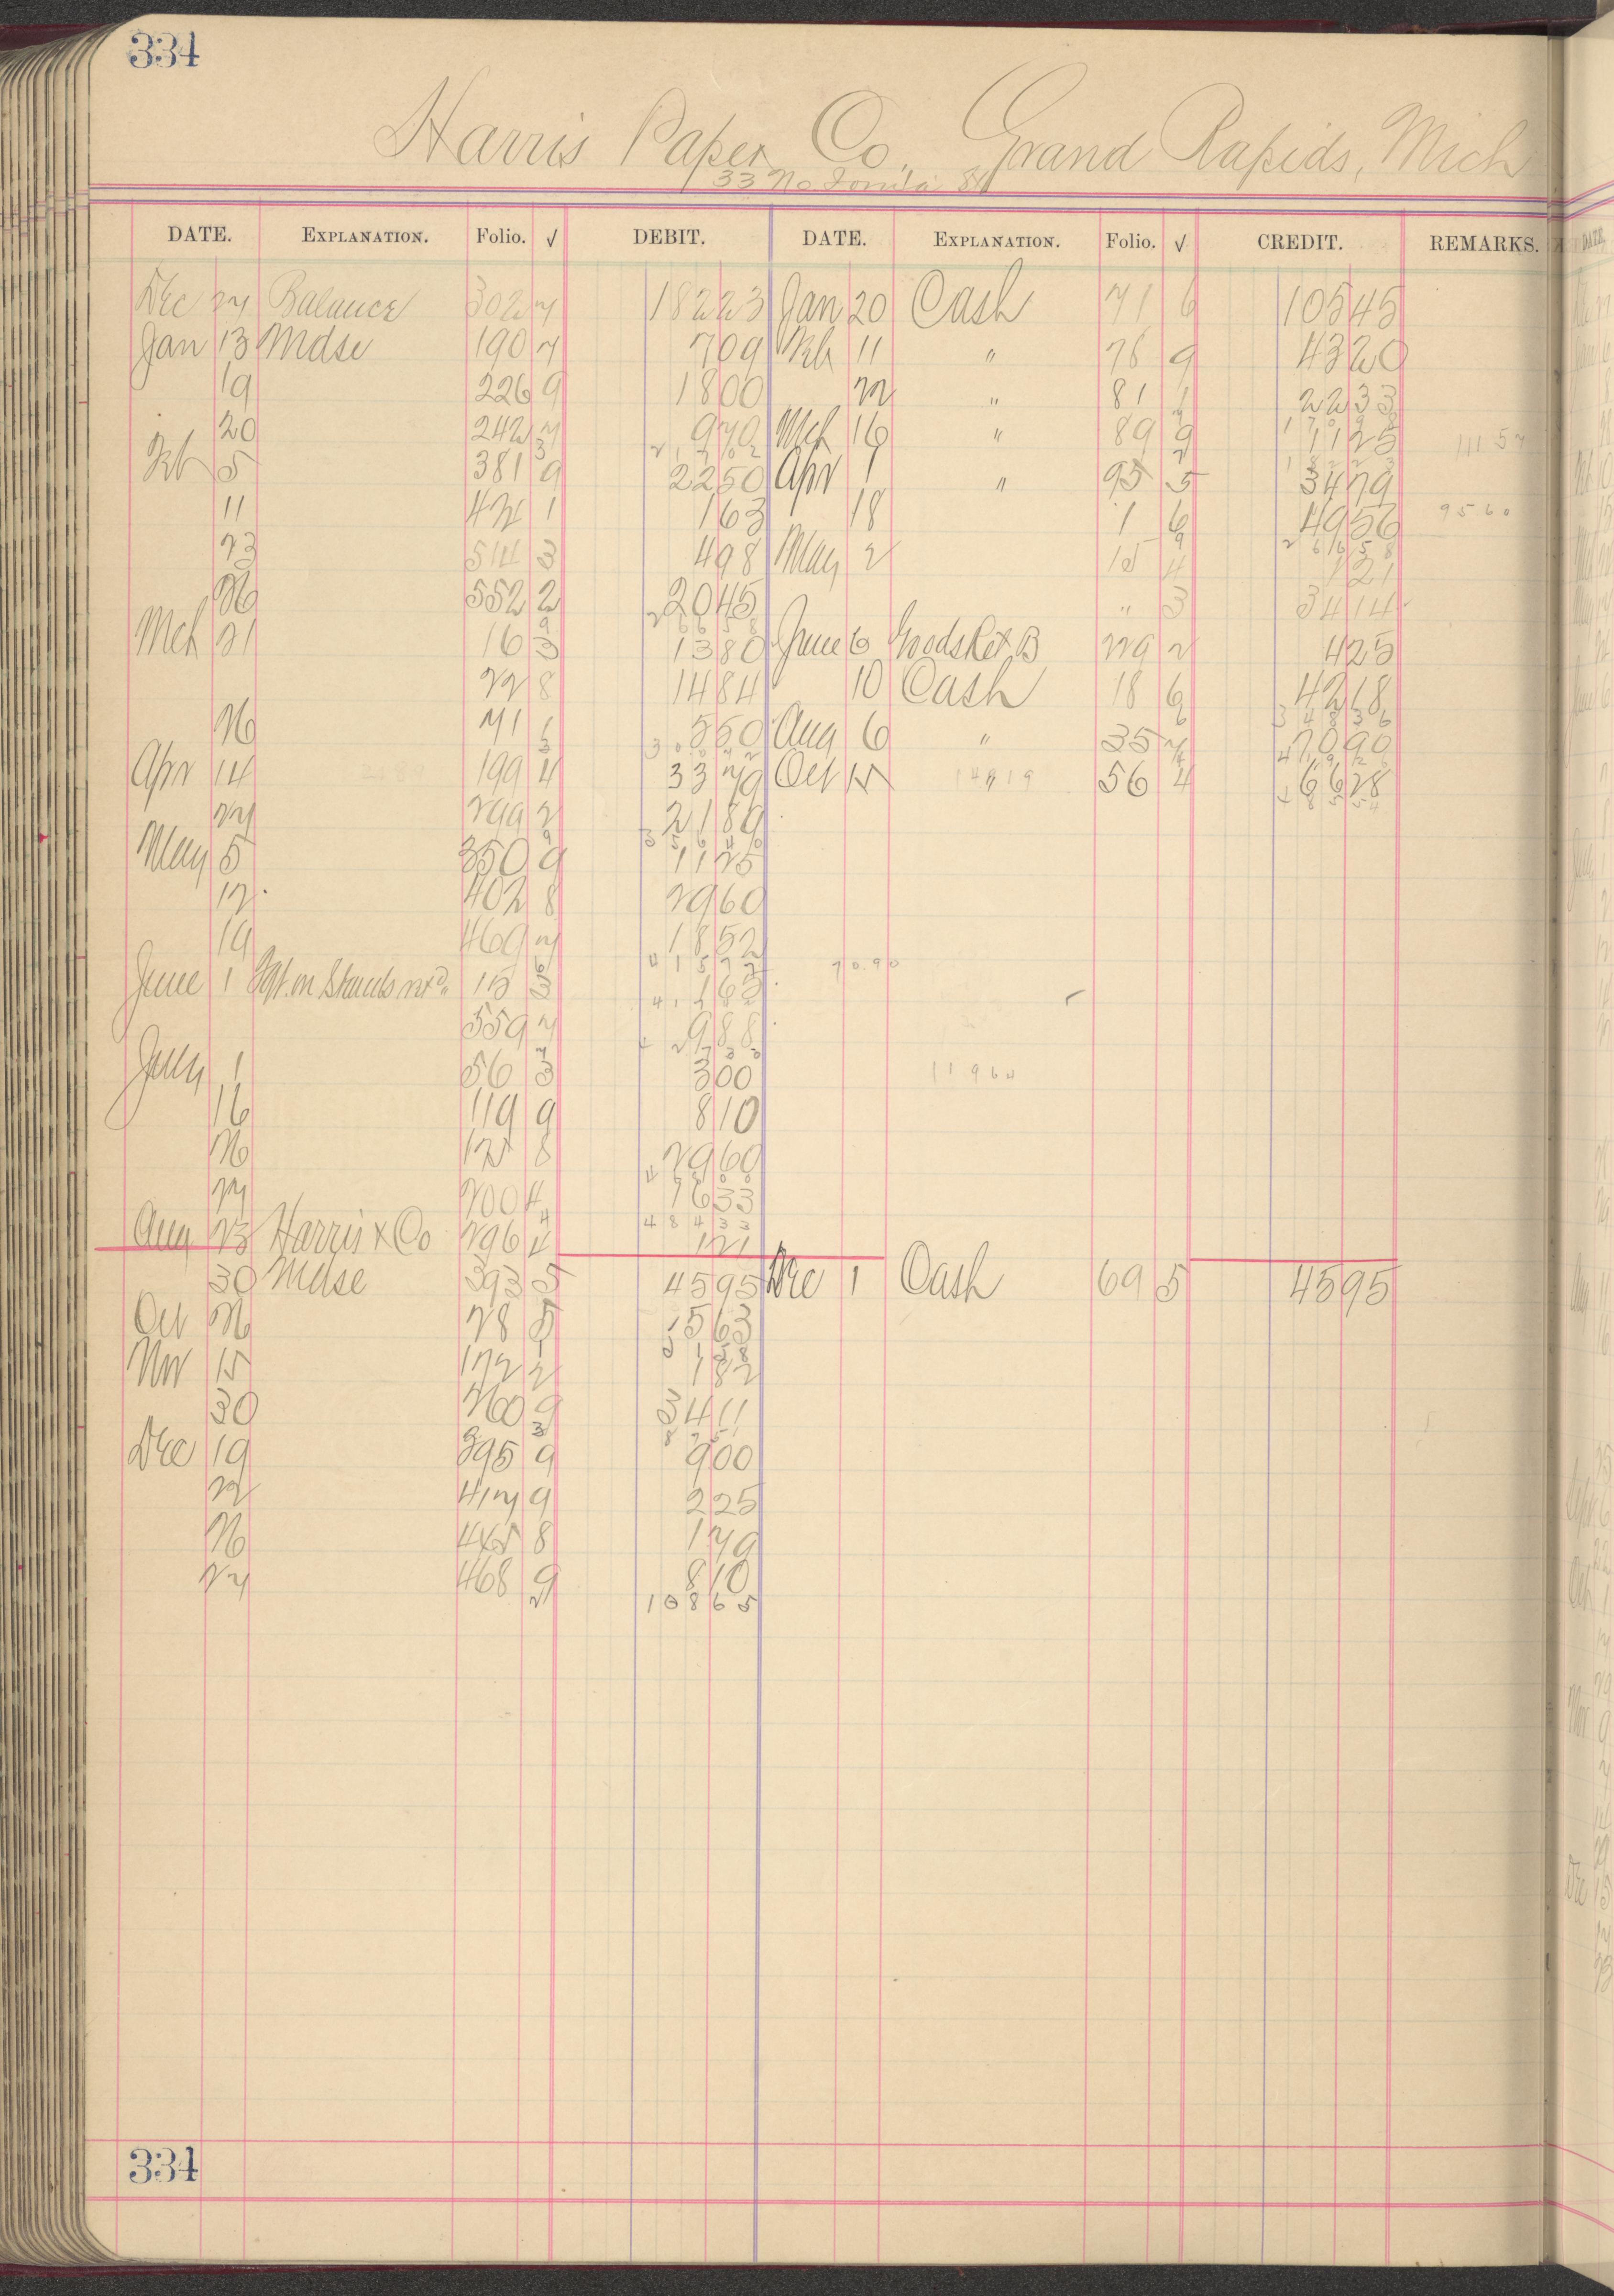 334
Harris Paper Co. Grand Rapids, Mich
33 No Ionia St
DATE. EXPLANATION. Folio. √ DEBIT. DATE. EXPLANATION. Folio. √ CREDIT. REMARKS.
Dec 27 Balance 302 7 182 23 Jan 20 Cash 71 6 105 45
Jan 13 Mdse 190 7 7 09 Feb 11 " 76 9 43 20
19 226 9 18 00 22 " 81 1 22 33
20 242 7 9 70 Mch 16 " 89 9 11 25 111 57
Feb 5 381 9 22 50 Apr 1 " 95 5 34 79
11 421 1 1 63 18 1 6 49 56 95 60
23 514 3 4 98 May 2 15 4 1 21
26 552 2 20 45 " 3 34 14
Mch 21 16 3 13 80 June 6 Goods Ret B 229 2 4 25
22 8 14 84 10 Cash 18 6 42 18
26 71 1 5 50 Aug 6 " 35 7 70 90
Apr 14 199 4 33 79 Oct 15 148 19 56 4 66 28
27 299 2 21 89
May 5 350 9 11 25
12 402 8 29 60
19 469 7 18 52
70 90
June 1 15 3 1 63
559 7 9 88
July 1 56 3 3 00 119 64
16 119 9 8 10
26 8 29 60
27 200 4 16 33
484 33
Aug 23 Harris & Co 296 4 1 21
30 Mdse 393 5 45 95 Dec 1 Cash 69 5 45 95
Oct 26 28 5 15 63
Nov 15 172 2 1 82
30 260 9 34 11
Dec 19 395 9 9 00
22 417 9 2 25
26 445 8 1 79
27 468 9 8 10
108 65
334